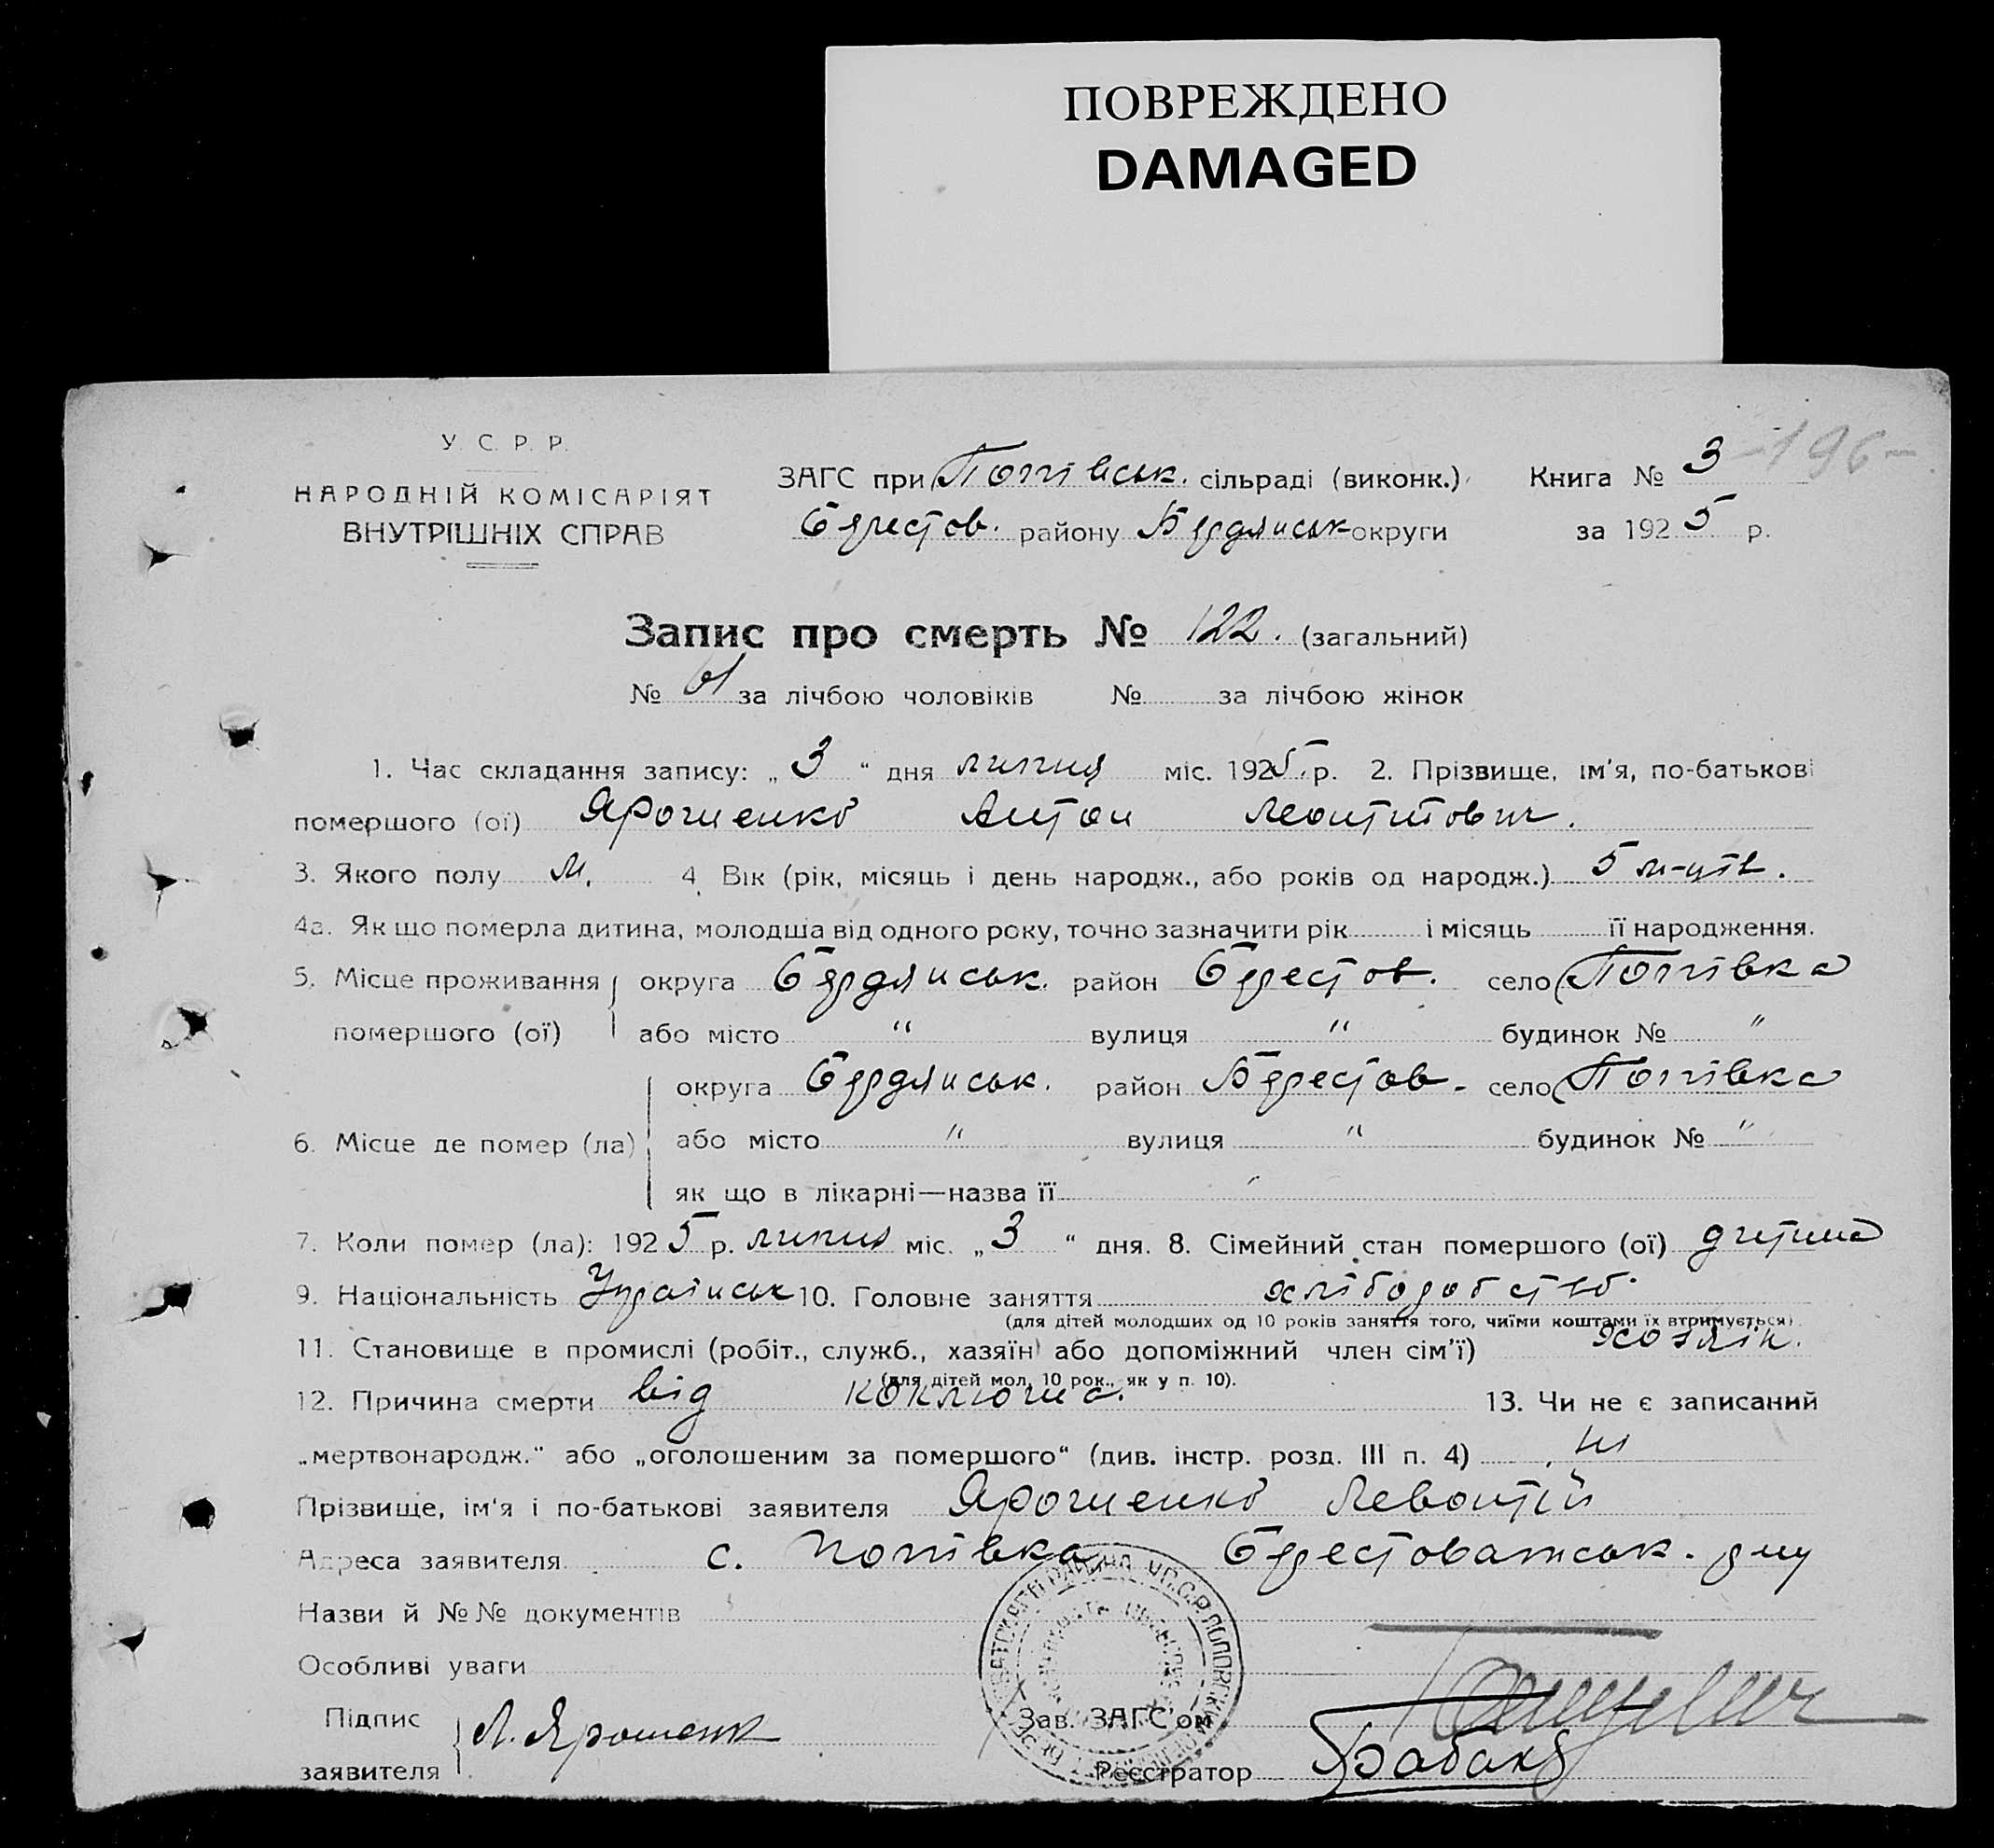 ПОВРЕЖДЕНО
DAMAGED
У. С. Р. Р.
НАРОДНІЙ КОМІСАРІЯТ
ВНУТРІШНІХ СПРАВ
ЗАГС при Попівськ. сільраді (виконк.)
Берестов. району Бердянськ округи
Книга № 3 -196-
за 1925 р.
Запис про смерть № 122. (загальний)
№ 61 за лічбою чоловіків № за лічбою жінок
1. Час складання запису: „3“ дня липня міс. 1925 р. 2. Прізвище, ім'я, по-батькові
помершого (ої) Ярошенко Антон Леонтитович.
3. Якого полу м. 4. Вік (рік, місяць і день народж., або років од народж.) 5 м-ців.
4а. Як що померла дитина, молодша від одного року, точно зазначити рік і місяць її народження.
5. Місце проживання округа Бердянськ. район Берестов. село Попівка
помершого (ої) або місто " вулиця " будинок № "
округа Бердянськ. район Берестов- село Попівка
6. Місце де помер (ла) або місто " вулиця " будинок № "
як що в лікарні—назва її
7. Коли помер (ла): 1925 р. липня міс. „3“ дня. 8. Сімейний стан помершого (ої) дитина
9. Національність Україньськ 10. Головне заняття хліборобство
(для дітей молодших од 10 років заняття того, чиїми коштами їх втримується).
11. Становище в промислі (робіт., служб., хазяїн) або допоміжний член сім'ї) хозяїн.
(для дітей мол. 10 рок., як у п. 10).
12. Причина смерти від коклюша. 13. Чи не є записаний
„мертвонародж.“ або „оголошеним за помершого“ (див. інстр. розд. III п. 4) ні
Прізвище, ім'я і по-батькові заявителя Ярошенко Левонтій
Адреса заявителя с. Попівка Берестоватськ. р-ну
Назви й №№ документів
Особливі уваги
Підпис Л. Ярошенк
заявителя
Зав. ЗАГС'ом
Реєстратор